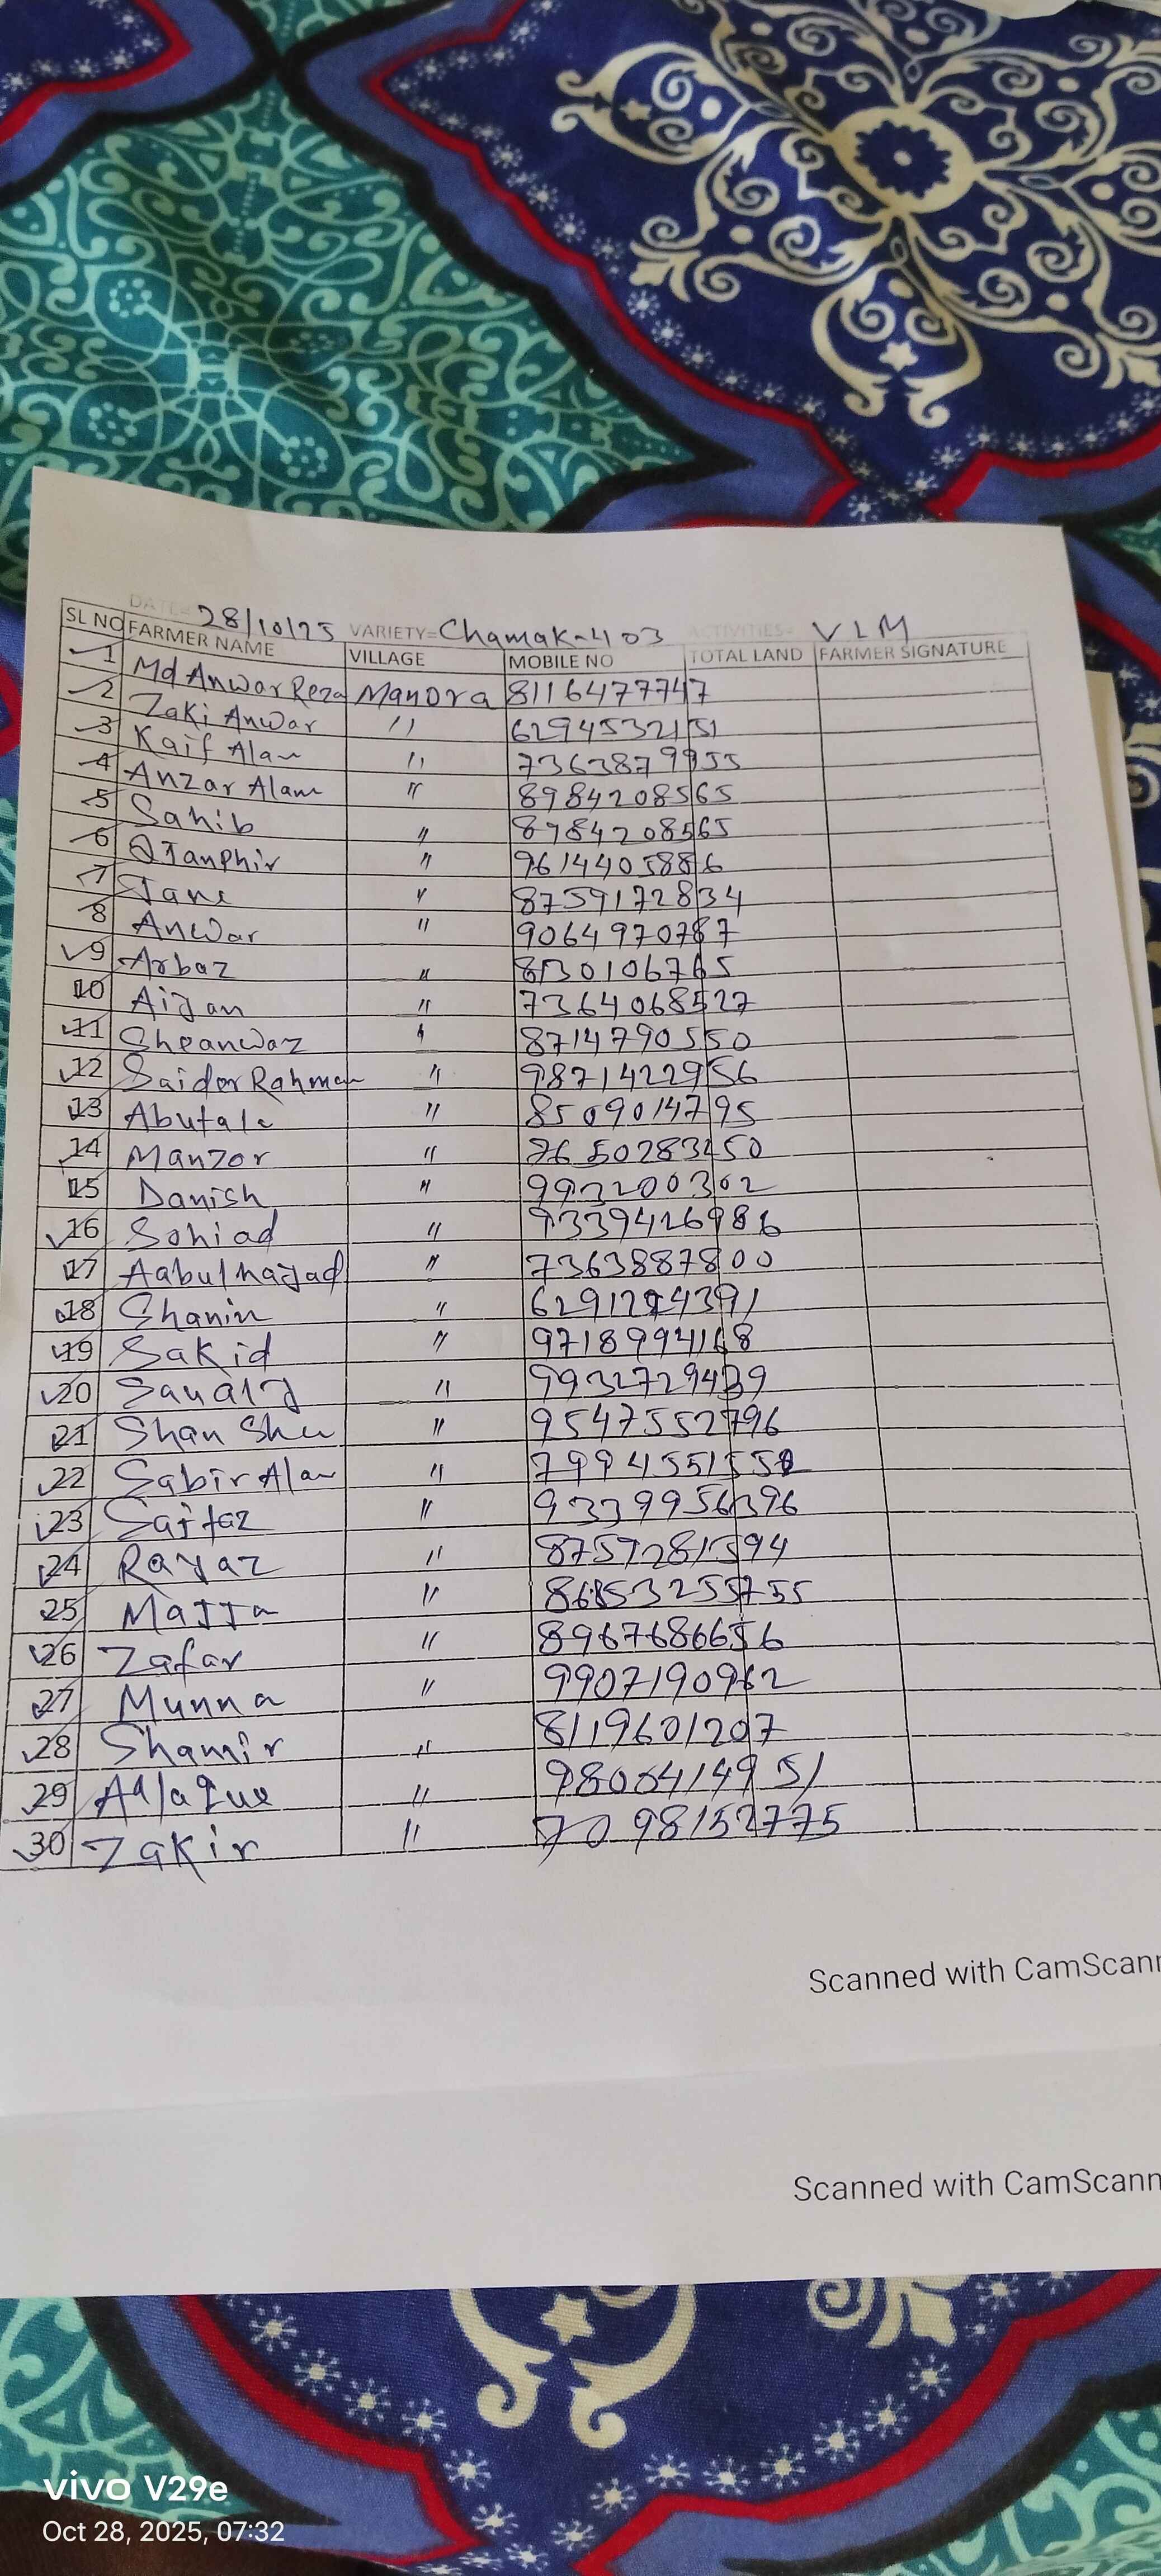 DATE= 28/10/25 VARIETY= Chamak-403 ACTIVITIES= VLM
SL NO FARMER NAME VILLAGE MOBILE NO TOTAL LAND FARMER SIGNATURE
1 Md Anwar Reza Manora 8116477747
2 Zaki Anwar " 6294532151
3 Kaif Alam " 7363879955
4 Anzar Alam " 8984208565
5 Sahib " 8984208565
6 " 9614405886
7 " 8759172834
8 Anwar " 9064970787
9 Arbaz " 8130106765
10 Aijan " 7364068527
11 Sheanwaz " 8714790550
12 Saidor Rahman " 9871422956
13 Abutale " 8509014795
14 Manzor "
15 Danish " 993200302
16 Sohiad " 9339426986
17 " 7363887800
18 Shanin "
19 Sakid " 9718994168
20 " 9932729439
21 Shan Shu " 9547552796
22 Sabir Alam "
23 " 9339956396
24 Rayaz " 8759281594
25 "
26 Zafar " 8967686656
27 Munna " 9907190962
28 Shamir " 8119601207
29 "
30 Zakir " 7098152775
Scanned with CamScann
Scanned with CamScann
vivo V29e
Oct 28, 2025, 07:32